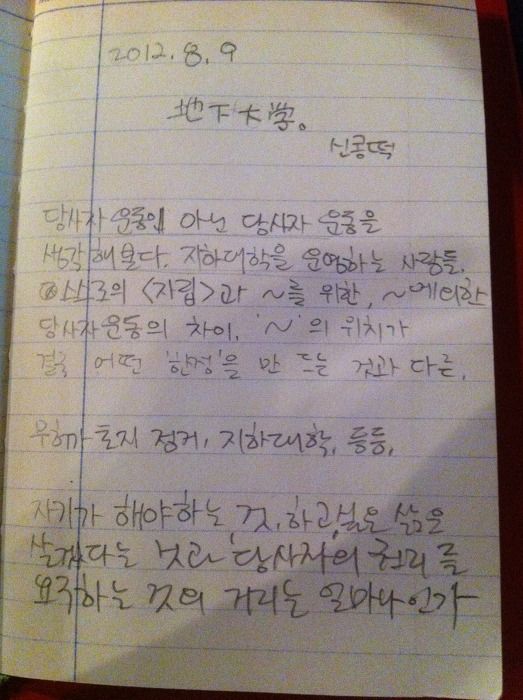 2012. 8. 9
地下大学。
신콩떡
당사자 운동이 아닌 당사자 운동을
생각해본다. 지하대학을 운영하는 사람들.
스스로의 <자립>과 ~를 위한, ~에 의한
당사자운동의 차이. '~'의 위치가
결국 어떤 '한정'을 만드는 것과 다른,
토지 점거, 지하대학, 등등,
자기가 해야하는 것, 하고싶은 삶은
살겠다는 것과 '당사자'의 권리를
요구하는 것의 거리는 얼마나인가